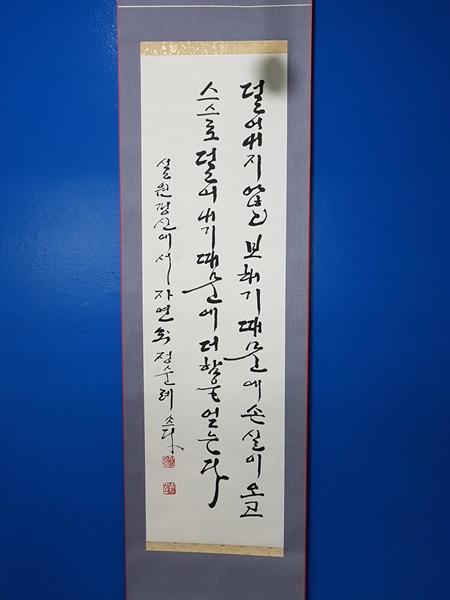 덜어내지 않고 보태기 때문에 손실이 오고
스스로 덜어내기 때문에 더함을 얻는다
설원경신에서 자연 정순례 쓰다